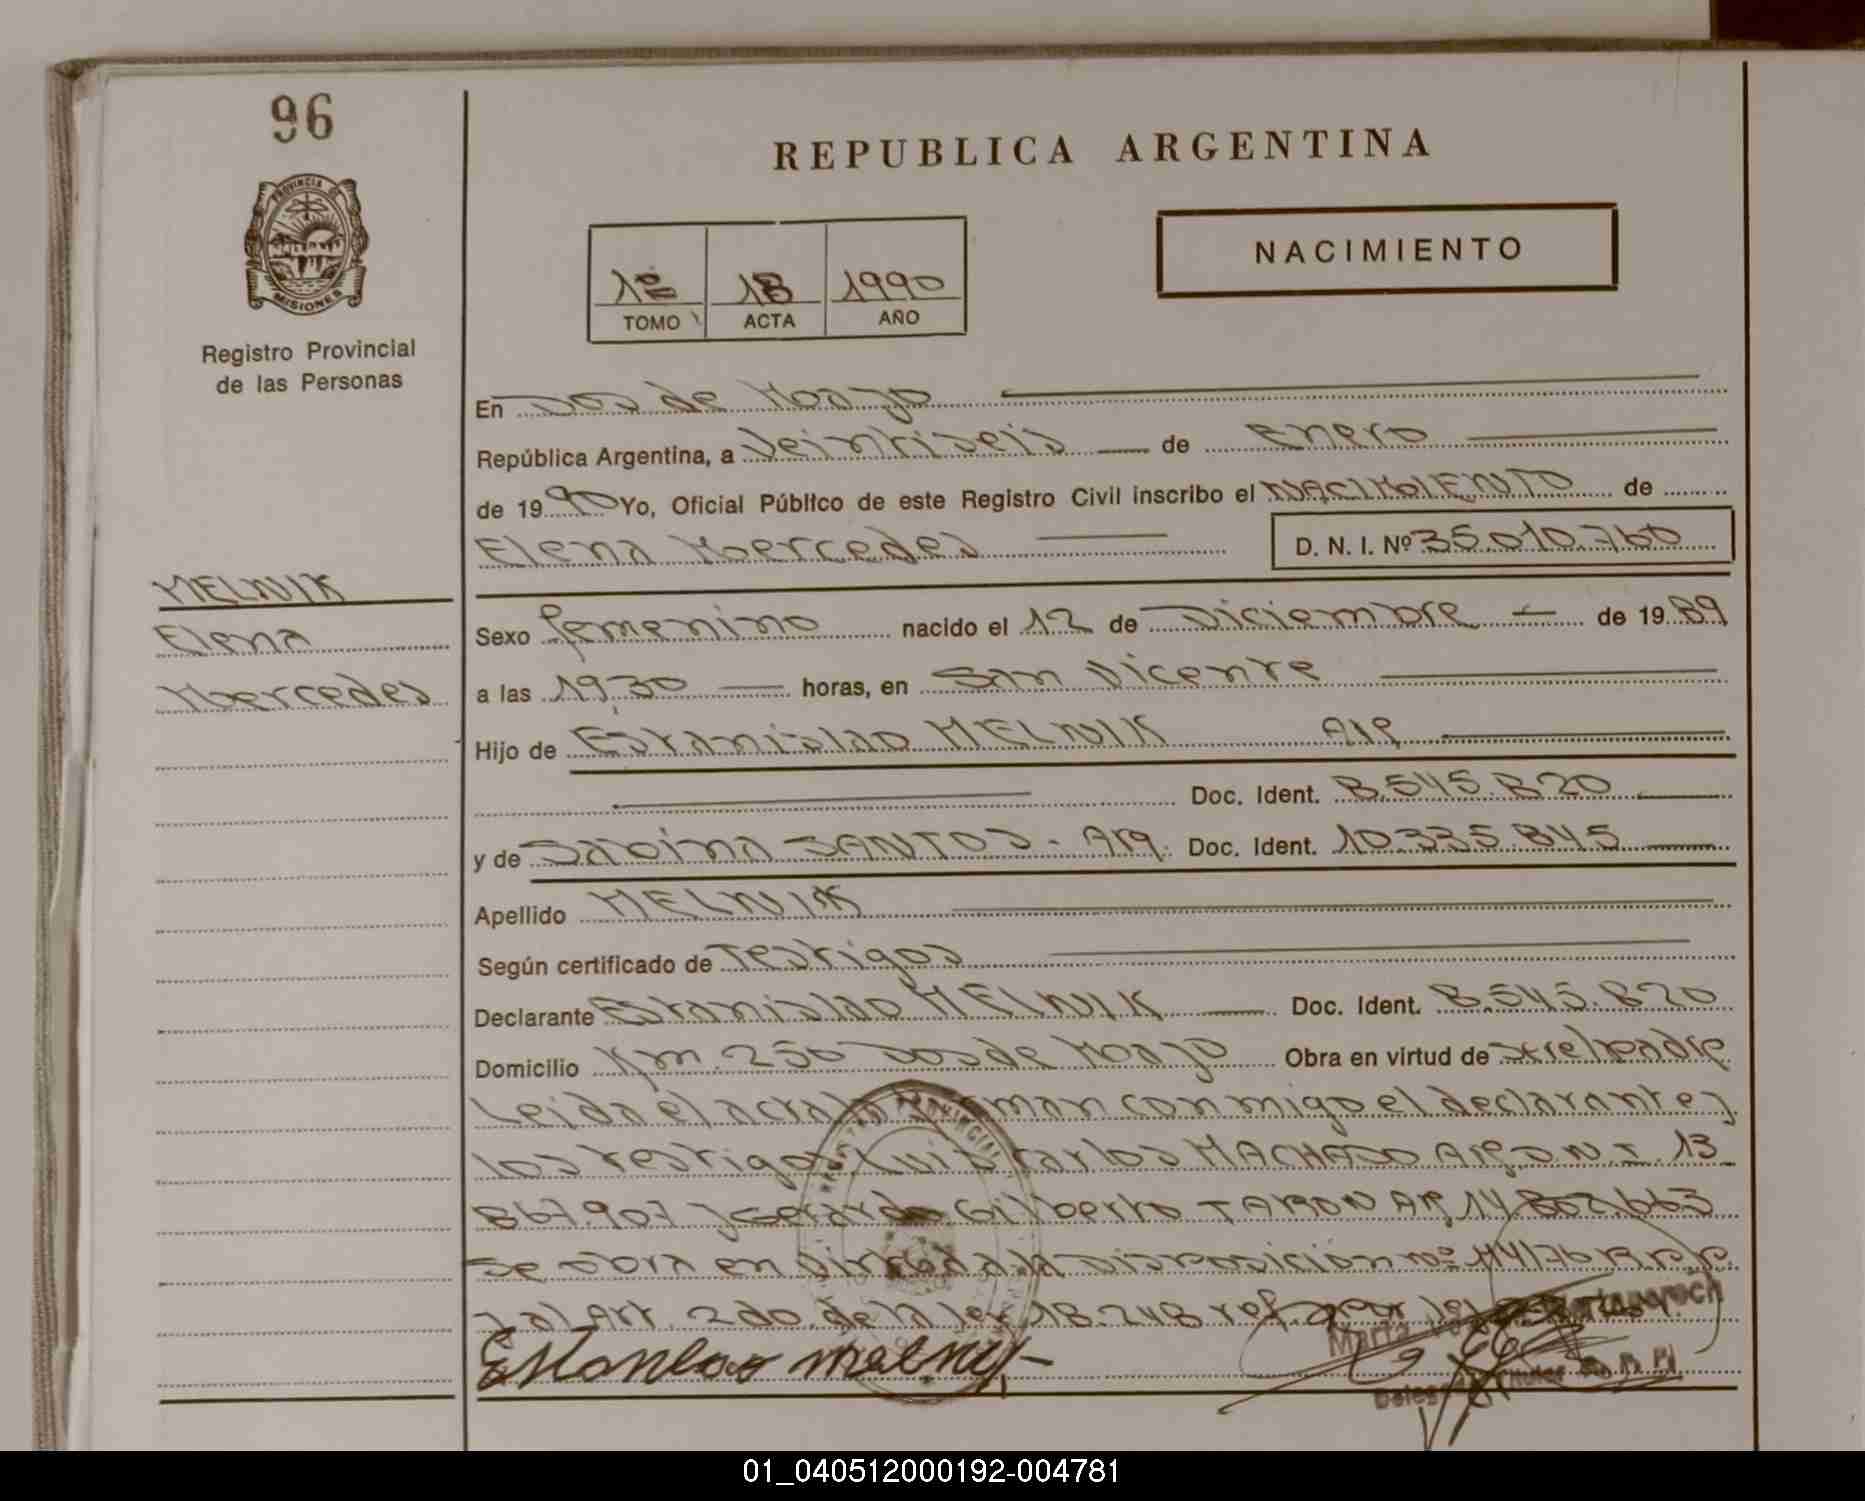 96
REPUBLICA ARGENTINA
PROVINCIA DE
MISIONES
Registro Provincial
de las Personas
1º 18 1990
TOMO ACTA AÑO
NACIMIENTO
En Dos de Mayo
República Argentina, a Veintiseis de Enero
de 1990 Yo, Oficial Público de este Registro Civil inscribo el NACIMIENTO de
Elena Mercedes D. N. I. Nº 35.010.760
MELNIK
Elena
Mercedes
Sexo femenino nacido el 12 de Diciembre de 1989
a las 19,30 horas, en San Vicente
Hijo de Estanislao MELNIK Arg
Doc. Ident. 8.545.820
y de Sabina SANTOS - Arg. Doc. Ident. 10.335.845
Apellido MELNIK
Según certificado de Testigos
Declarante Estanislao MELNIK Doc. Ident. 8.545.820
Domicilio Km. 256 Dos de Mayo Obra en virtud de ser el padre
Leida el acta la firman conmigo el declarante y
los testigos Luis Carlos MACHADO Arg D N I 13
867.907 y Gerardo Gilberto TARON Arg 14.802.663
Se obra en virtud a la Disposición nº 114/76
y al Art. 2do. de la ley 18.248 ref. por ley
Estanlao melnik
01_040512000192-004781